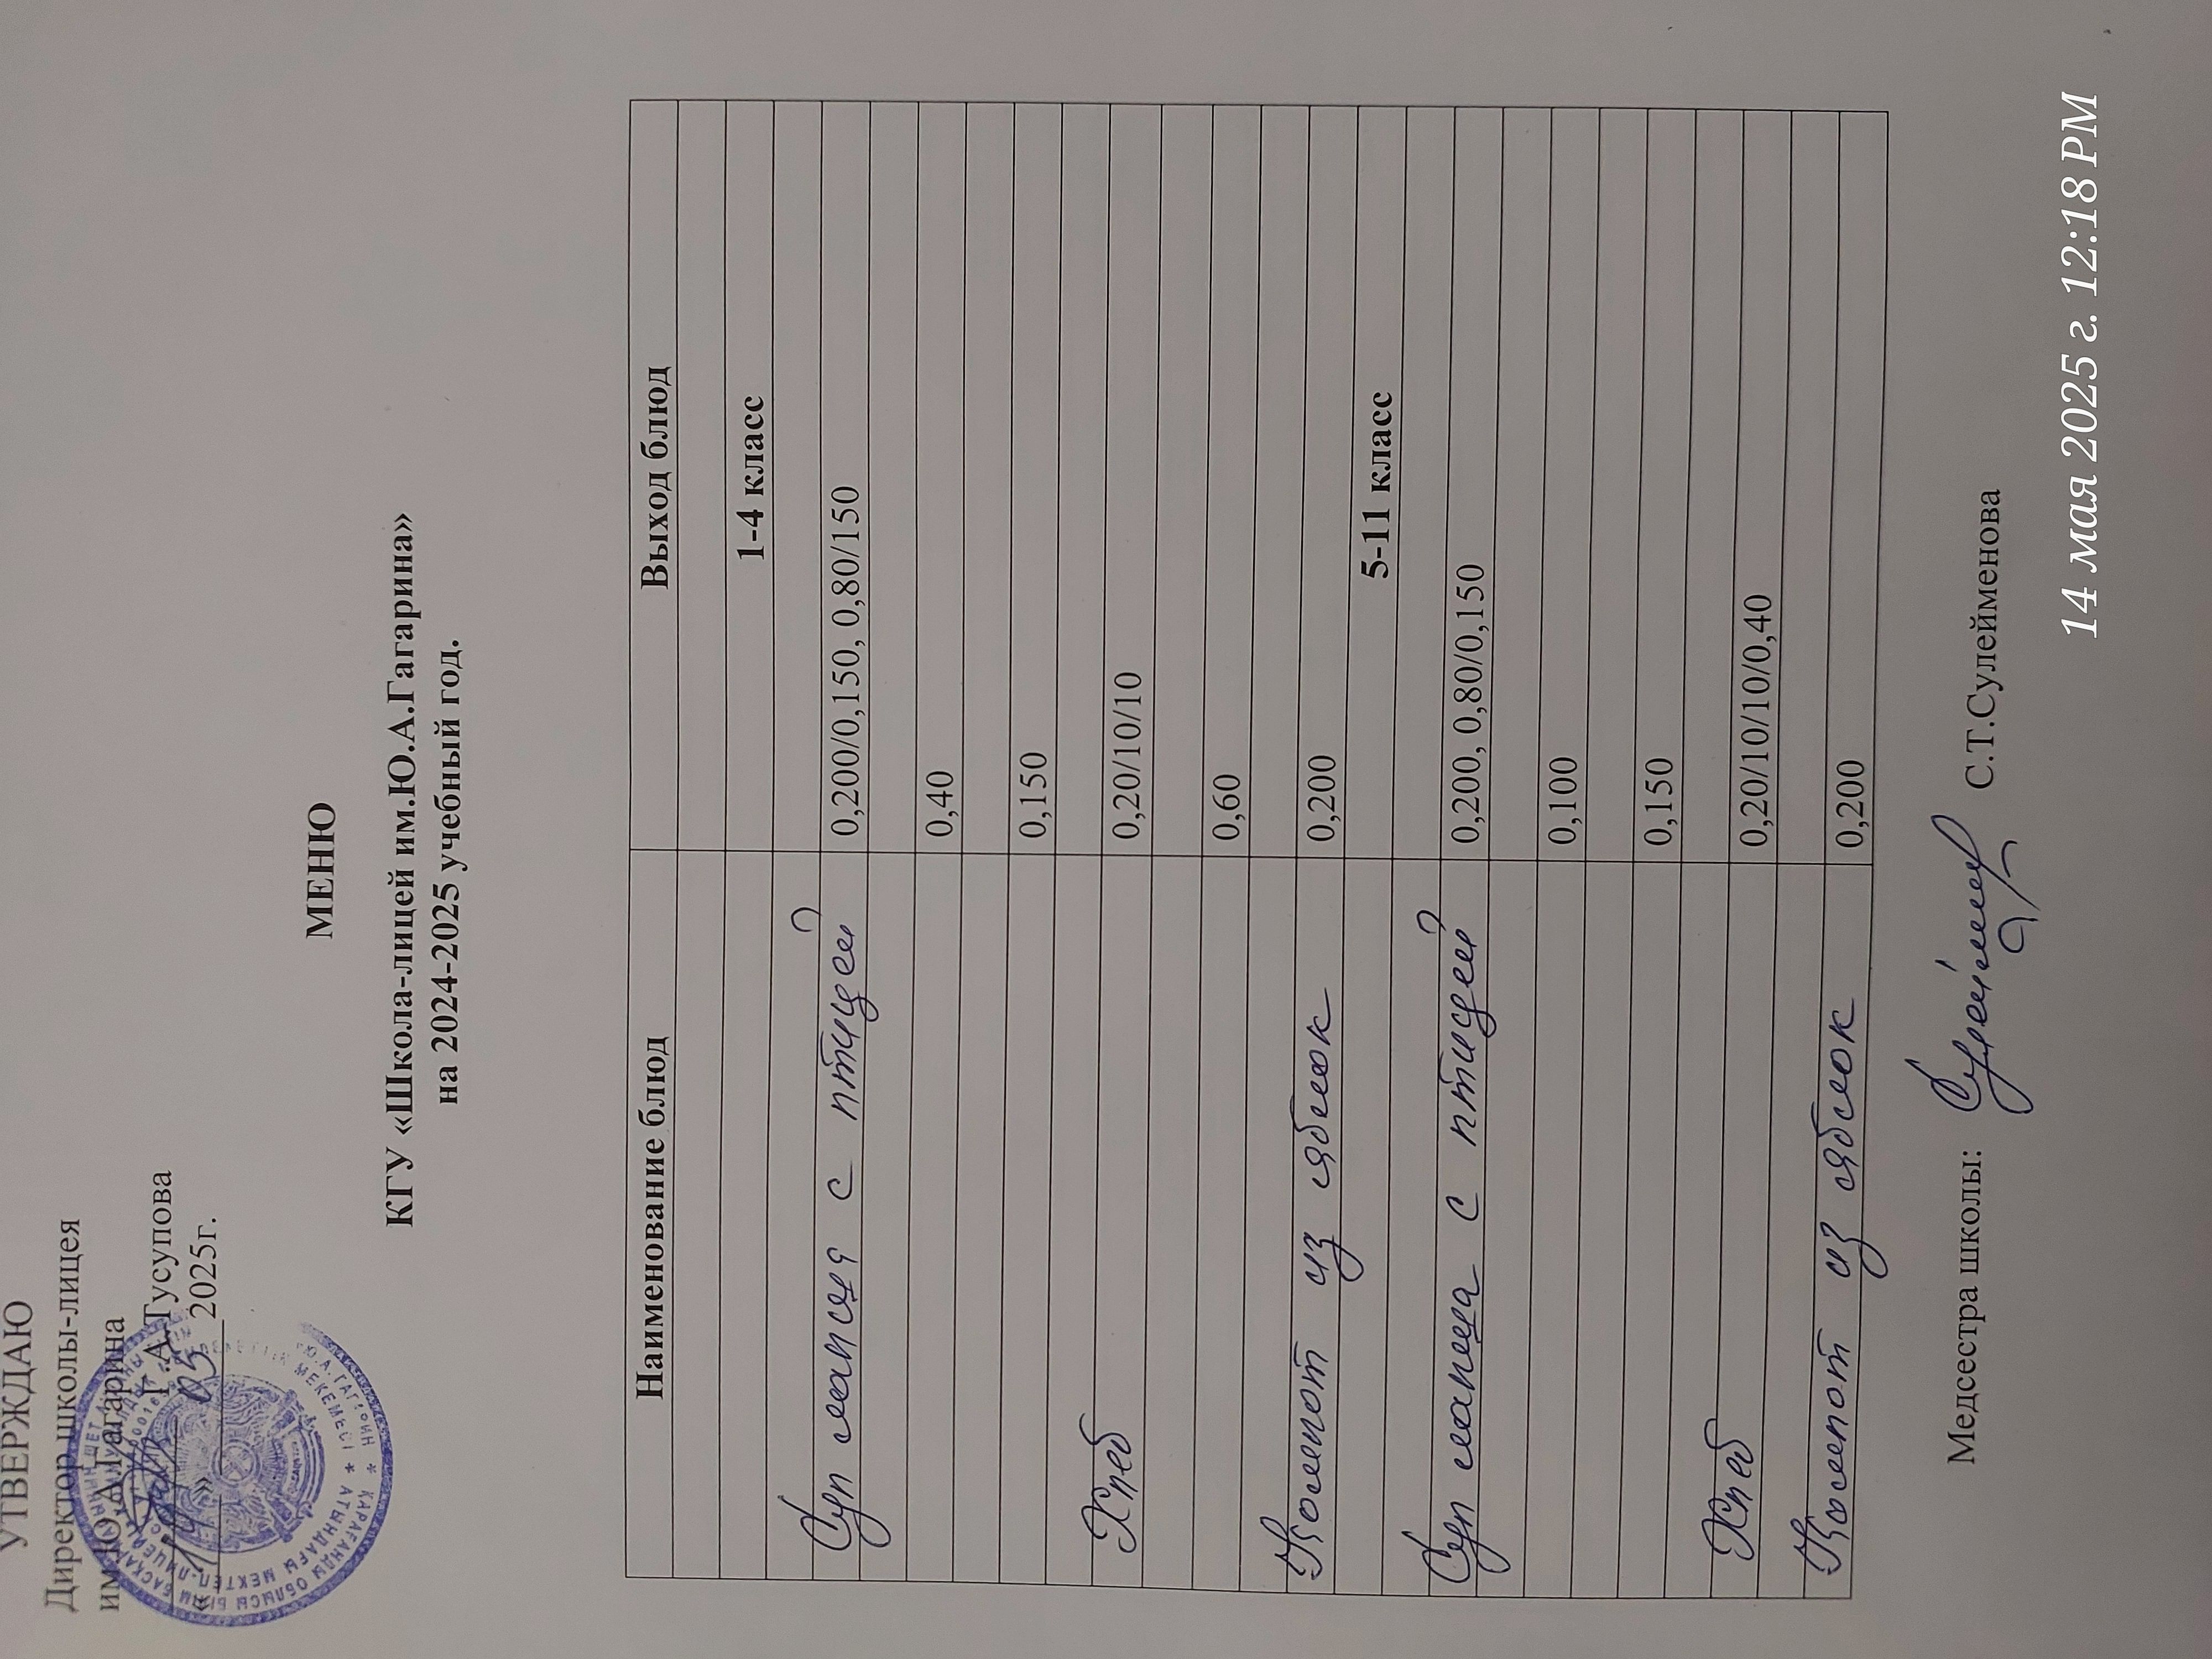 УТВЕРЖДАЮ
Директор школы-лицея
им.Ю.А.Гагарина
Г.А.Тусупова
«14» 05 2025г.
МЕНЮ
КГУ «Школа-лицей им.Ю.А.Гагарина»
на 2024-2025 учебный год.
Наименование блюд Выход блюд
1-4 класс
Суп лапша с птицей 0,200/0,150, 0,80/150
0,40
0,150
Хлеб 0,20/10/10
0,60
Компот из яблок 0,200
5-11 класс
Суп лапша с птицей 0,200, 0,80/0,150
0,100
0,150
Хлеб 0,20/10/10/0,40
Компот из яблок 0,200
Медсестра школы: С.Т.Сулейменова
14 мая 2025 г. 12:18 PM